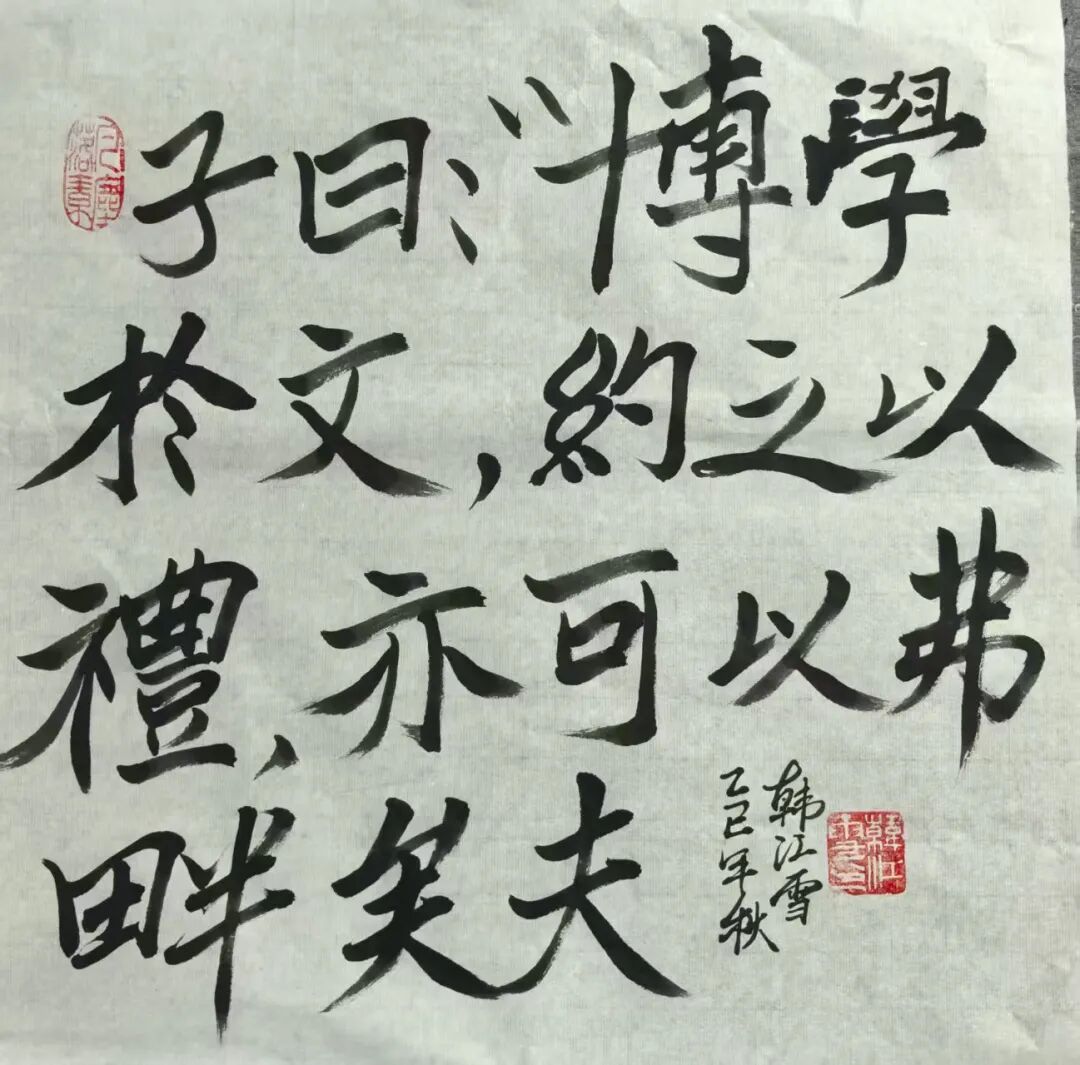 子曰：“博學
於文，約之以
禮，亦可以弗
畔矣夫
韩江雪
乙巳年秋
韓江